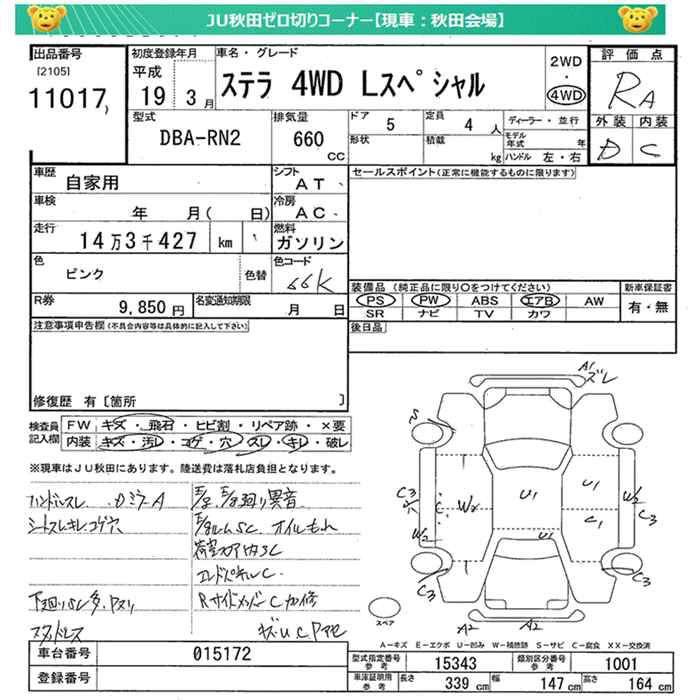 JU秋田ゼロ切りコーナー【現車：秋田会場】
出品番号
[2105]
11017
初度登録年月
平成
19 3月
車名・グレード
ステラ 4WD Lスペシャル
2WD
・
4WD
評価点
RA
外装 内装
D C
型式
DBA-RN2
排気量
660
CC
ドア 5
定員 4 人
形状
積載 kg
ディーラー・並行
モデル年式 年
ハンドル 左・右
車歴
自家用
シフト
AT
車検
年 月( 日)
冷房
AC
走行
14万3千427 km
燃料
ガソリン
色
ピンク
色替
色コード
66K
R券
9,850円
名変通知期限
月 日
セールスポイント(正常に機能するものに限ります)
装備品(純正品に限り○をつけてください)
新車保証書
PS PW ABS エアB AW
有・無
SR ナビ TV カワ
後日品
注意事項申告欄(不具合内容等は具体的に記入して下さい)
修復歴 有[箇所 ]
検査員
記入欄
FW キズ・飛石・ヒビ割・リペア跡・×要
内装 キズ・汚レ・コゲ・穴・スレ・キレ・破レ
※現車はJU秋田にあります。陸送費は落札店負担となります。
ハンドルスレ
シートスレキレコゲ穴
オイルもれ
スタッドレス
A1
ズレ
S
C3
W2
U1
U1
C1
W2
C3
W2
U1
C3
C3
A2
A2
スペア
A－キズ E－エクボ U－凹み W－補修跡 S－サビ C－腐食 XX－交換済
車台番号
015172
登録番号
型式指定番号
参考
15343
類別区分番号
参考
1001
車庫証明用
参考
長さ 339 cm
幅 147 cm
高さ 164 cm